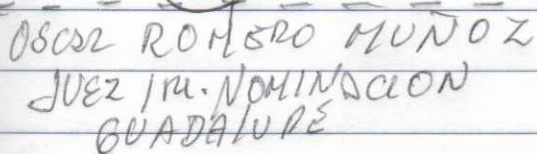 OSCAR ROMERO MUÑOZ
JUEZ 1RA. NOMINACION
GUADALUPE